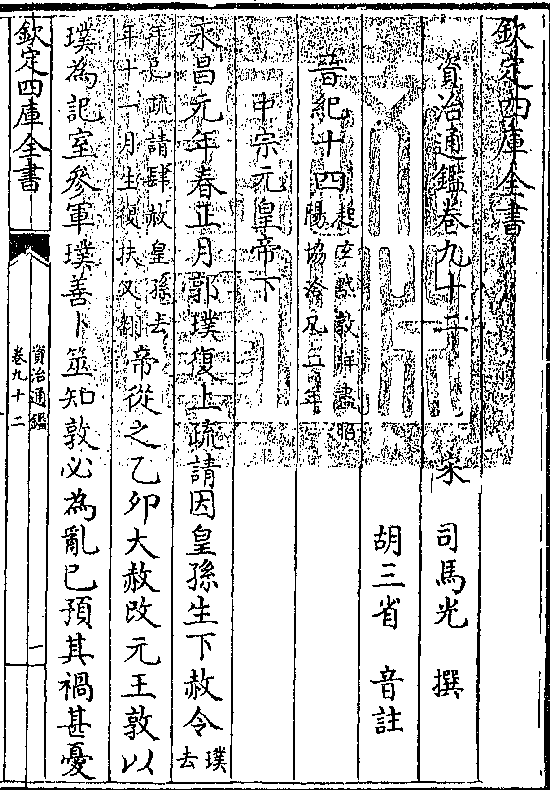 欽定四庫全書
資治通鑑卷九十二
宋 司馬光 撰
胡三省 音註
晉紀十四 起玄黓敦牂盡昭陽協洽凡二年
中宗元皇帝下
永昌元年春正月郭璞復上疏請因皇孫生下赦令 璞去
年已疏請肆赦皇孫去年十一月生復扶又翻 帝從之乙卯大赦改元王敦以
璞為記室參軍璞善卜筮知敦必為亂已預其禍甚憂
欽定四庫全書
資治通鑑
卷九十二
一